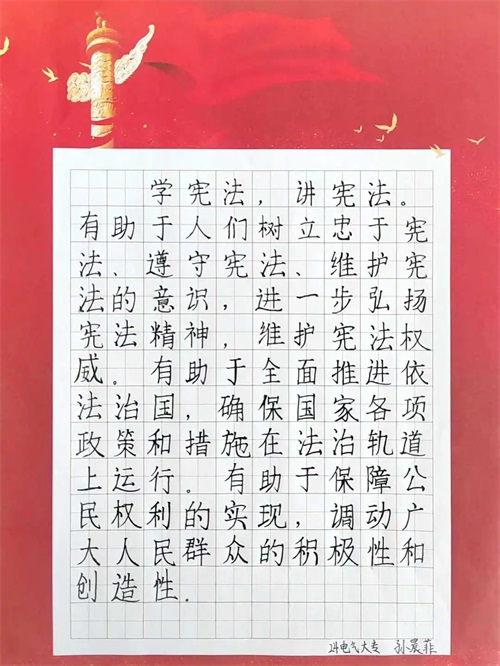 学宪法，讲宪法。
有助于人们树立忠于宪
法、遵守宪法、维护宪
法的意识，进一步弘扬
宪法精神，维护宪法权
威。有助于全面推进依
法治国，确保国家各项
政策和措施在法治轨道
上运行。有助于保障公
民权利的实现，调动广
大人民群众的积极性和
创造性.
24电气大专 孙晨菲